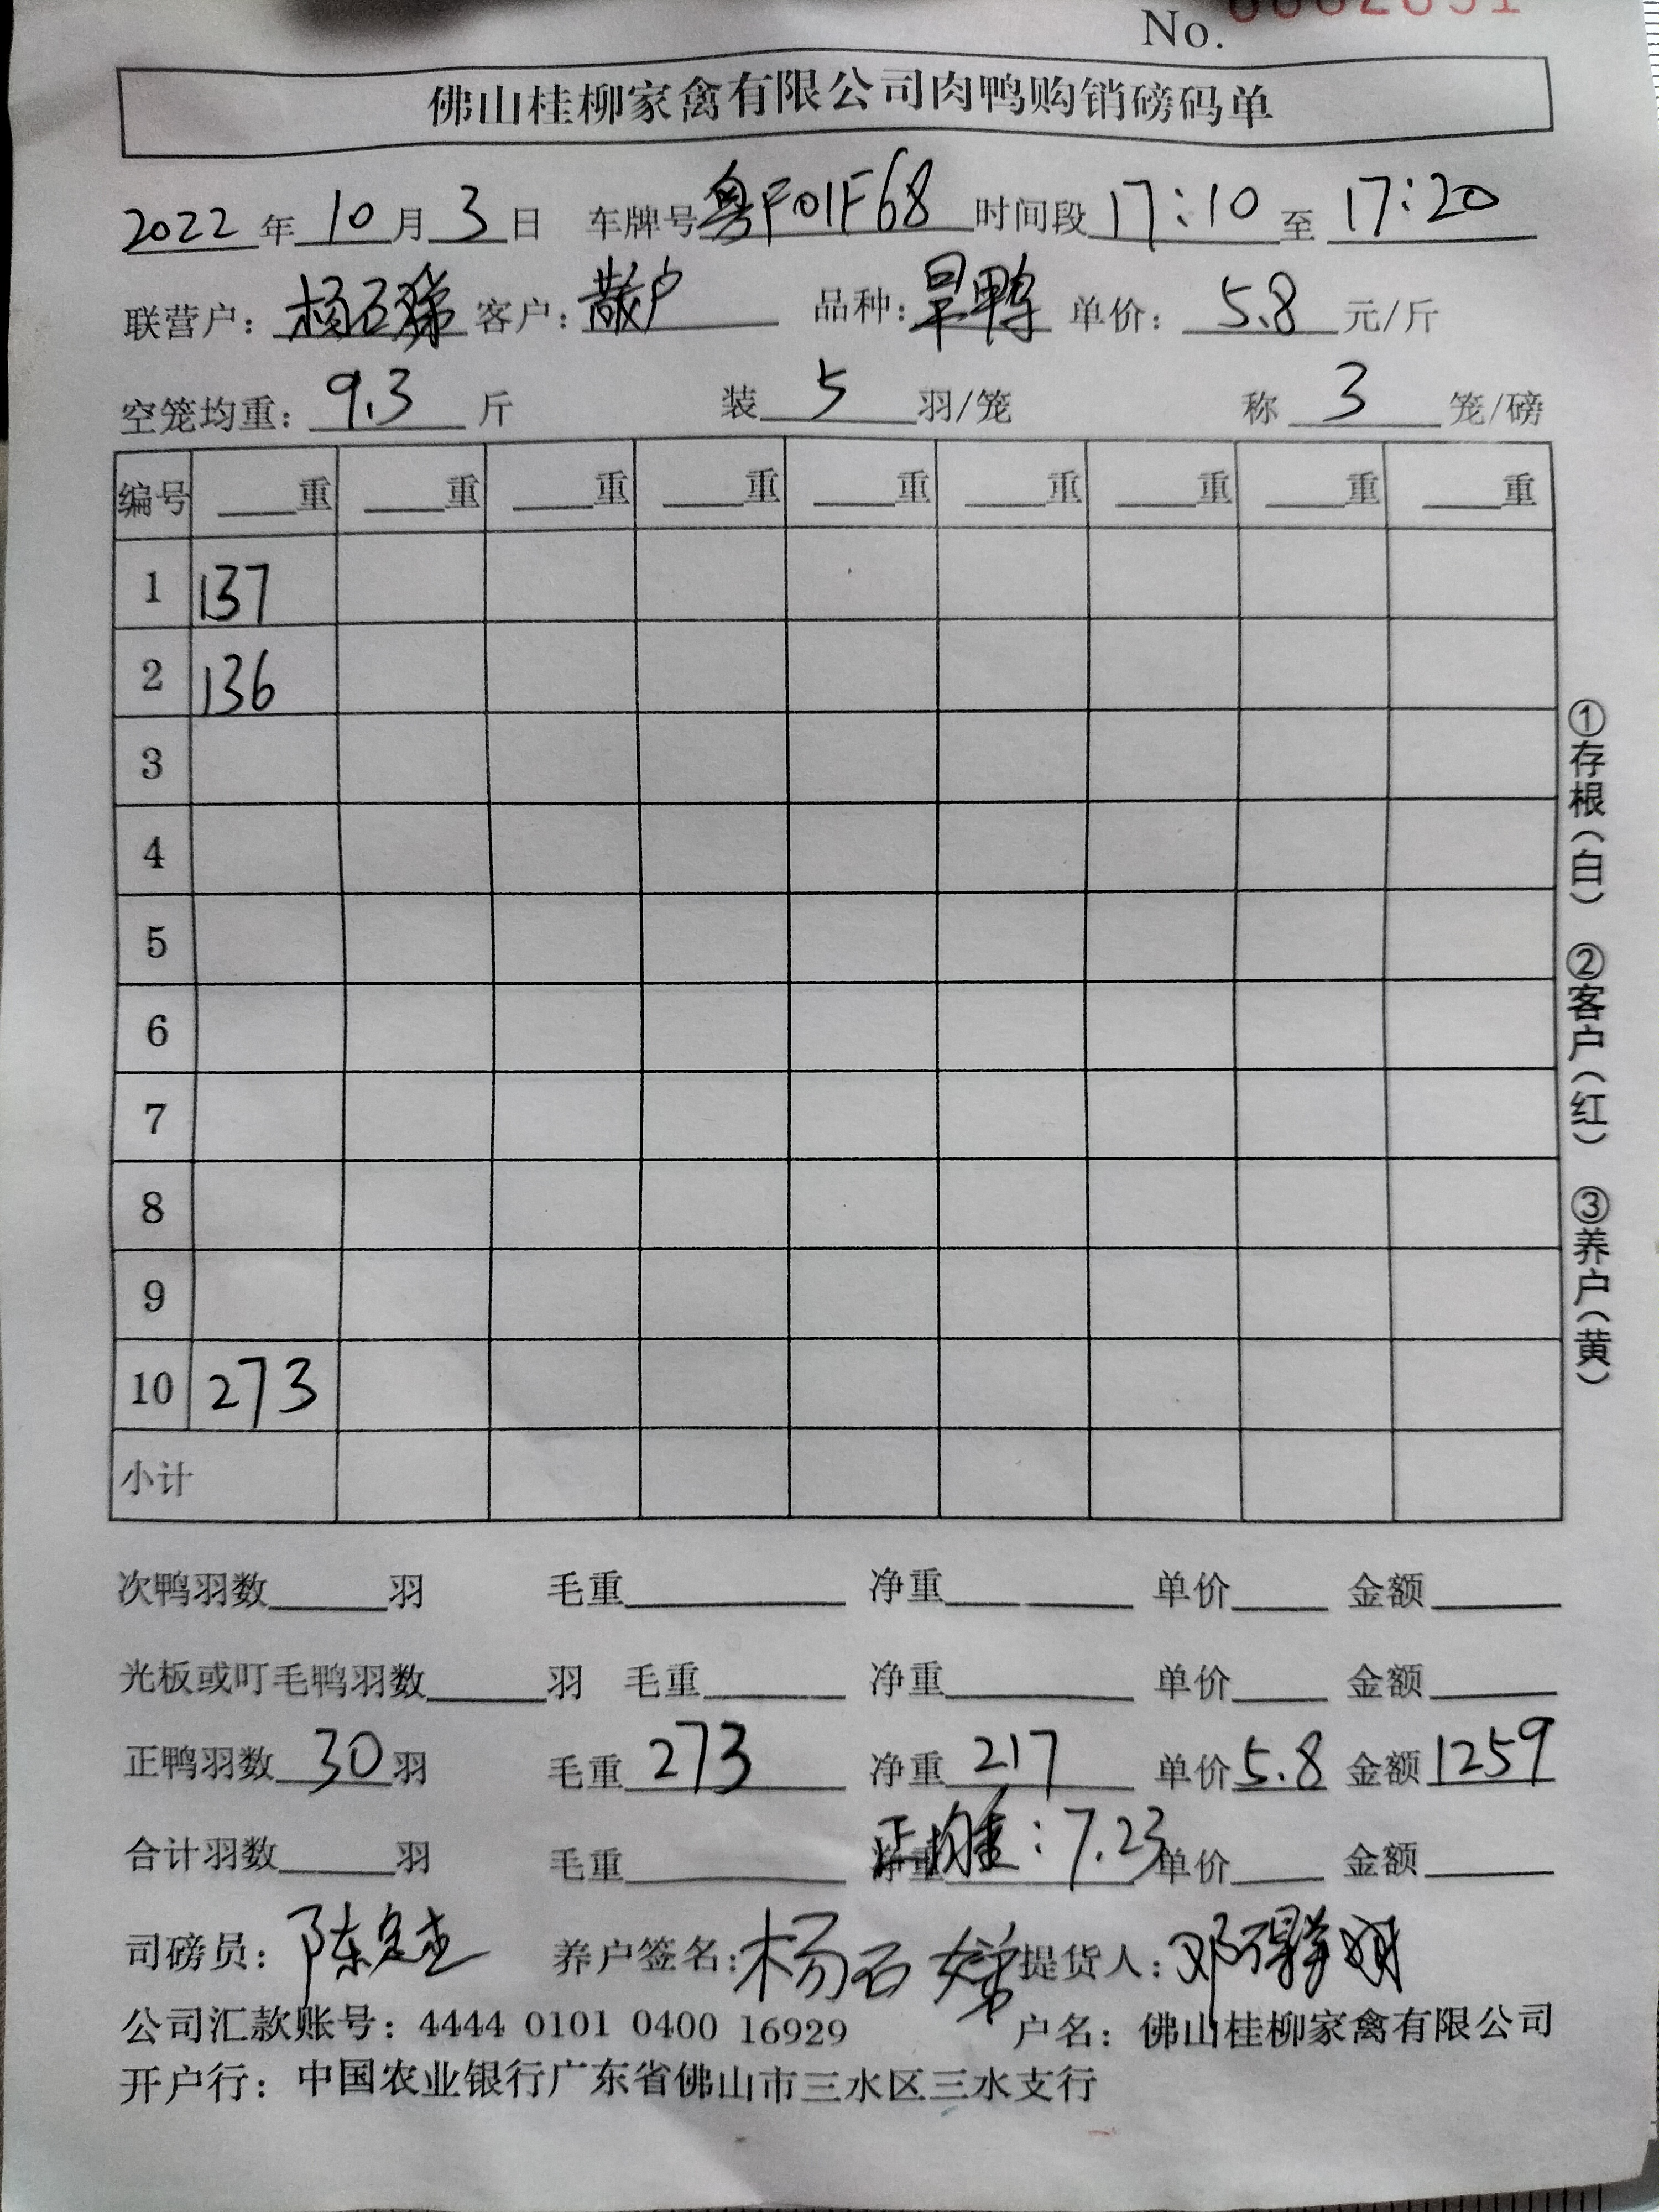 No. 0062651
佛山桂柳家禽有限公司肉鸭购销磅码单
2022年10月3日 车牌号粤F01F68 时间段17:10至17:20
联营户：杨石娣 客户：散户 品种：旱鸭 单价：5.8元/斤
空笼均重：9.3斤 装5羽/笼 称3笼/磅
编号 重 重 重 重 重 重 重 重 重
1 137
2 136
3
4
5
6
7
8
9
10 273
小计
次鸭羽数 羽 毛重 净重 单价 金额
光板或叮毛鸭羽数 羽 毛重 净重 单价 金额
正鸭羽数30羽 毛重273 净重217 单价5.8 金额1259
正均重：7.23
合计羽数 羽 毛重 净重 单价 金额
司磅员：陈 养户签名：杨石娣 提货人：邓
公司汇款账号：4444 0101 0400 16929 户名：佛山桂柳家禽有限公司
开户行：中国农业银行广东省佛山市三水区三水支行
①存根（白） ②客户（红） ③养户（黄）